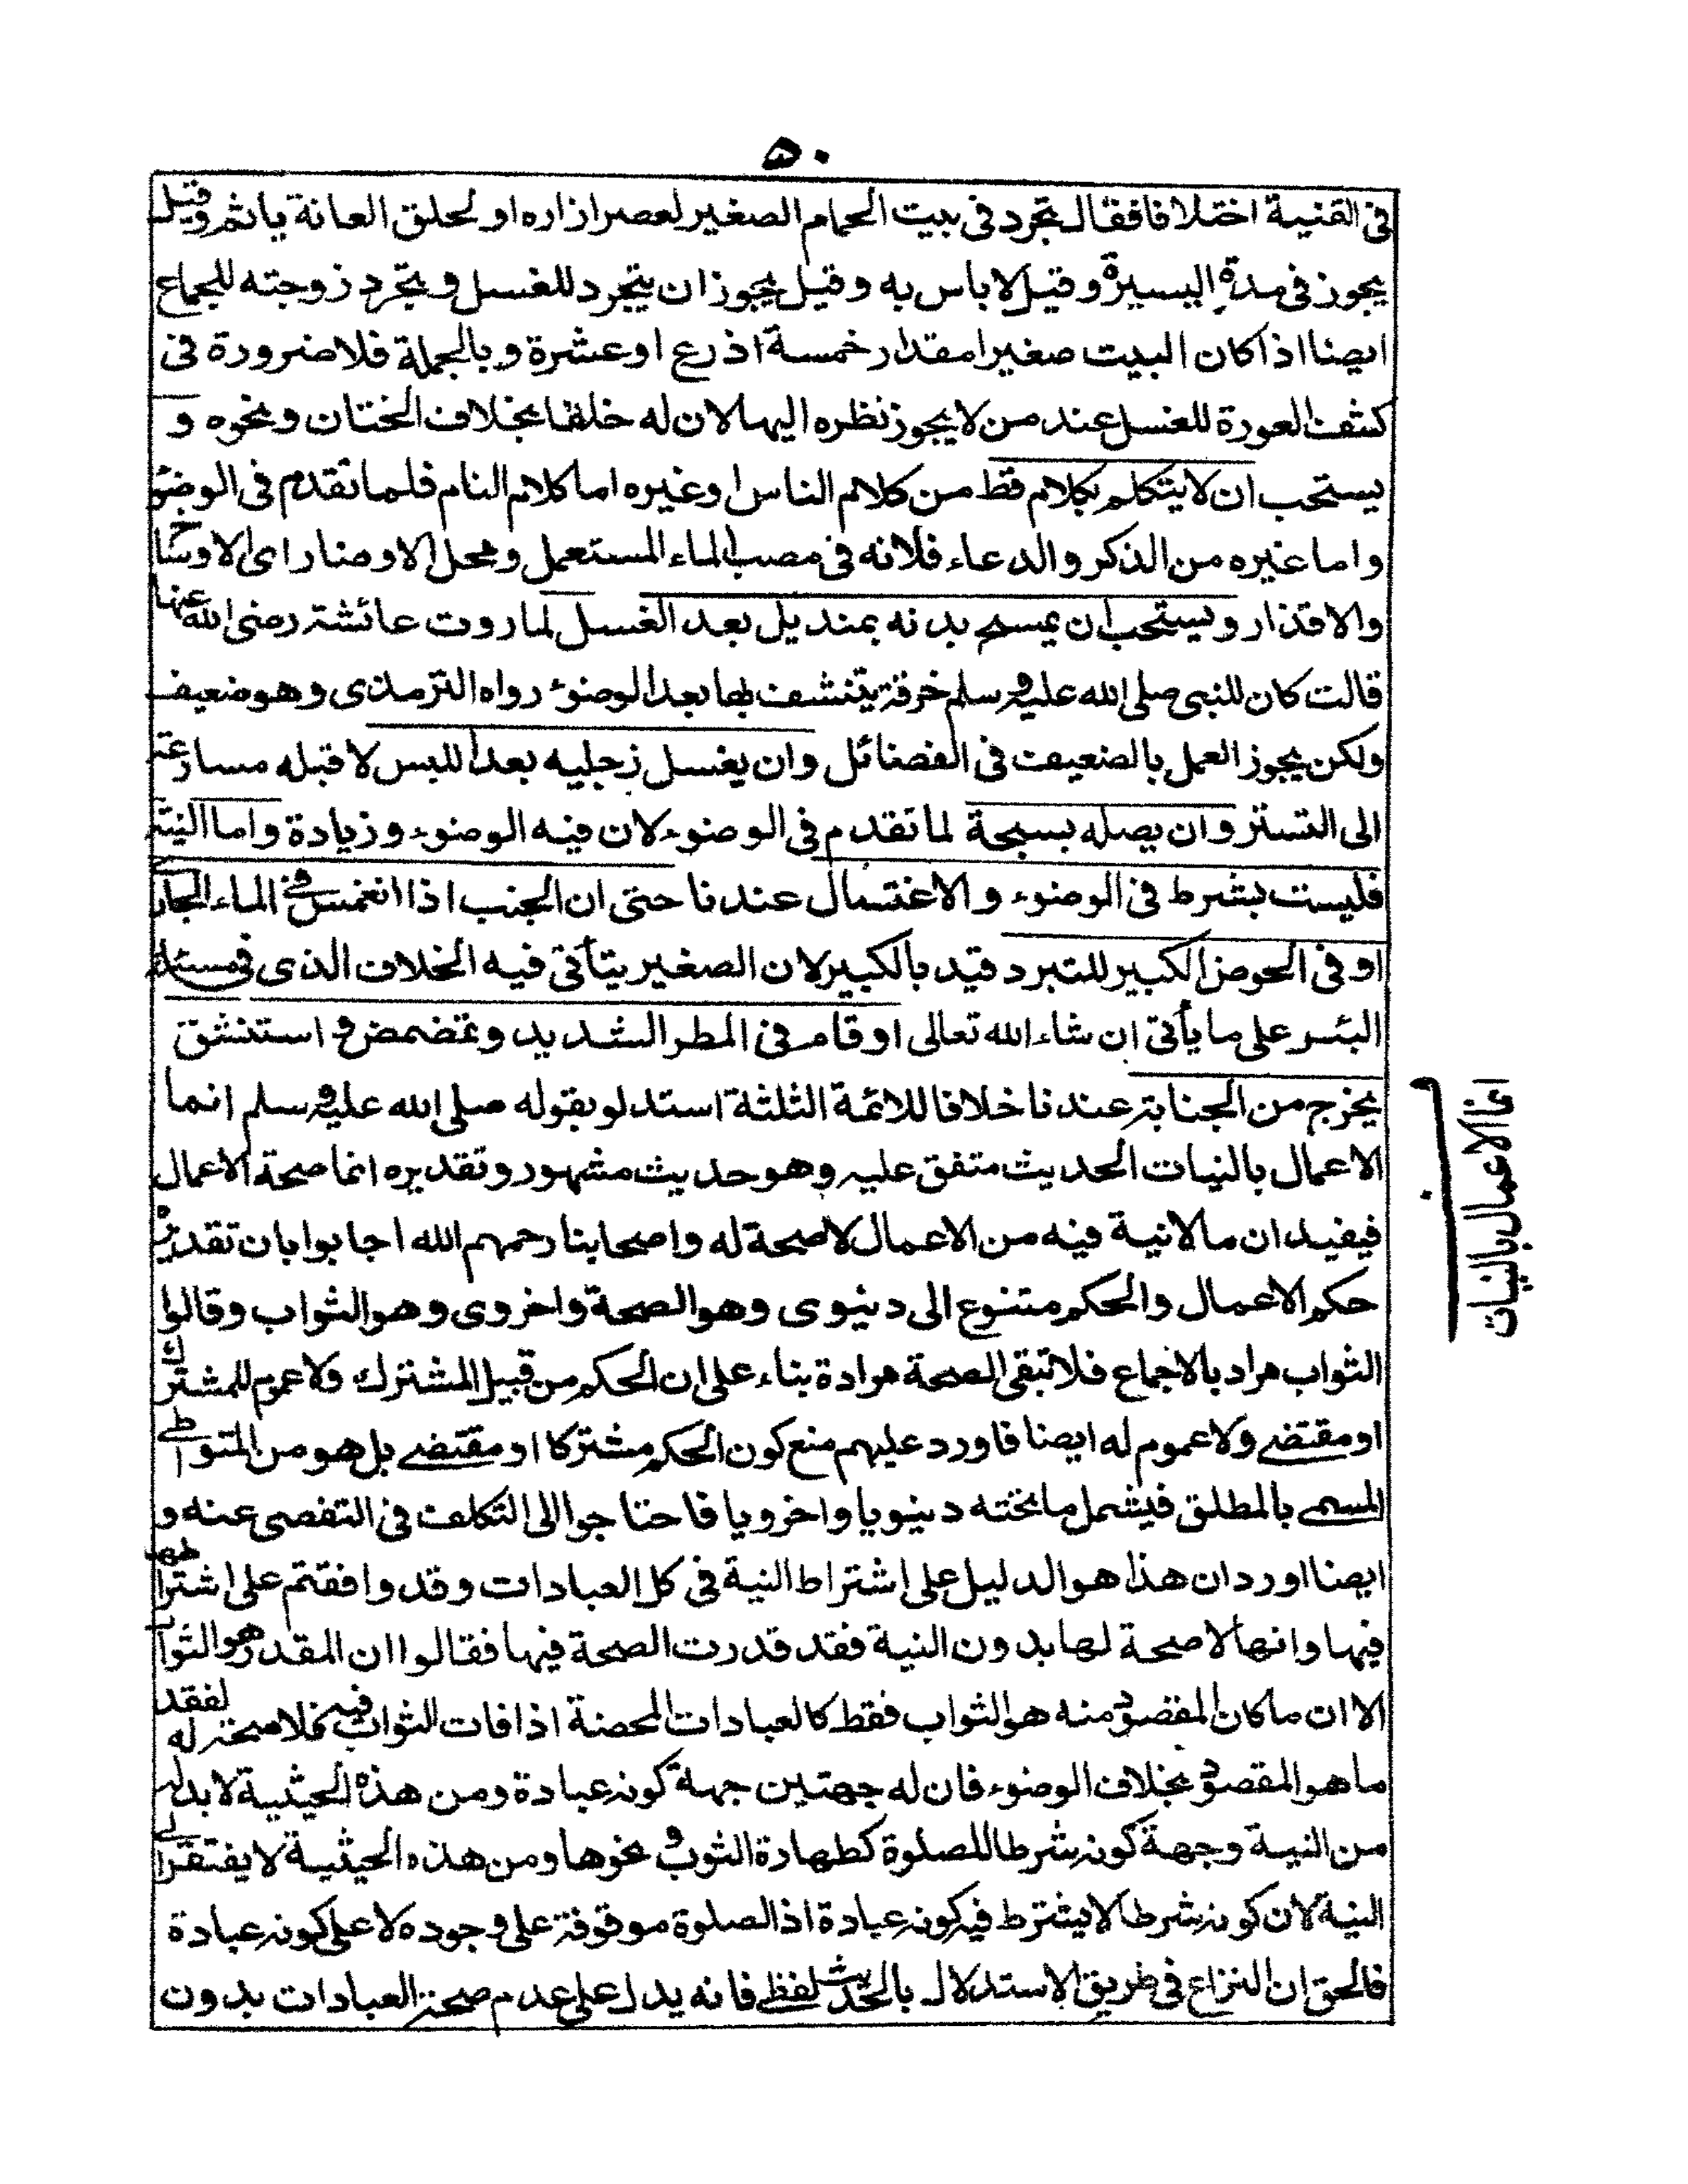 ٥٠
فى القنية اختلافا فقال تجرد فى بيت الحمام الصغير لعصر ازاره او لحلق العانة يأثم وقيل
يجوز فى مدة اليسيرة وقيل لا باس به وقيل يجوز ان يتجرد للغسل وتجرد زوجته للجماع
ايضا اذا كان البيت صغيرا مقدار خمسة اذرع او عشرة وبالجملة فلا ضرورة فى
كشف العورة للغسل عند من لا يجوز نظره اليها لان له خلفا بخلاف الختان ونحوه و
يستحب ان لا يتكلم بكلام قط من كلام الناس او غيره اما كلام الناس فلما تقدم فى الوضوء
واما غيره من الذكر والدعاء فلانه فى مصب الماء المستعمل ومحل الاوضار اى الاوساخ
والاقذار ويستحب ان يمسح بدنه بمنديل بعد الغسل لما روت عائشة رضى الله عنها
قالت كان للنبى صلى الله عليه وسلم خرقة يتنشف بها بعد الوضوء رواه الترمذى وهو ضعيف
ولكن يجوز العمل بالضعيف فى الفضائل وان يغسل رجليه بعد اللبس لا قبله مسارعة
الى التستر وان يصله بسبحة لما تقدم فى الوضوء لان فيه الوضوء وزيادة واما النية
فليست بشرط فى الوضوء والاغتسال عندنا حتى ان الجنب اذا انغمس فى الماء الجار
او فى الحوض الكبير للتبرد قيد بالكبير لان الصغير يتأتى فيه الخلاف الذى فى مسئلة
البئر على ما يأتى ان شاء الله تعالى او قام فى المطر الشديد وتمضمض و استنشق
يخرج من الجنابة عندنا خلافا للائمة الثلثة استدلو بقوله صلى الله عليه وسلم انما
الاعمال بالنيات الحديث متفق عليه وهو حديث مشهور وتقديره انما صحة الاعمال
فيفيد ان ما لا نية فيه من الاعمال لا صحة له واصحابنا رحمهم الله اجابوا بان تقديره
حكم الاعمال والحكم متنوع الى دنيوى وهو الصحة واخروى وهو الثواب وقالوا
الثواب مراد بالاجماع فلا تبقى الصحة مرادة بناء على ان الحكم من قبيل المشترك ولا عموم للمشترك
او مقتضے ولا عموم له ايضا فاورد عليهم منع كون الحكم مشتركا او مقتضے بل هو من المتواطے
المسمے بالمطلق فيشمل ما تحته دنيويا واخرويا فاحتاجوا الى التكلف فى التفصى عنه و
ايضا اورد ان هذا هو الدليل على اشتراط النية فى كل العبادات وقد وافقتم على اشتراطها
فيها وانها لا صحة لها بدون النية فقد قدرت الصحة فيها فقالوا ان المقدر هو الثواب
الا ان ما كان المقصود منه هو الثواب فقط كالعبادات المحضة اذا فات الثواب فيه فلا صحة له لفقد
ما هو المقصود بخلاف الوضوء فان له جهتين جهة كونه عبادة ومن هذه الحيثية لا بد له
من النية وجهة كونه شرطا للصلوة كطهارة الثوب و نحوها ومن هذه الحيثية لا يفتقر الے
النية لان كونه شرطا لا يشترط فيه كونه عبادة اذ الصلوة موقوفة على وجوده لا على كونه عبادة
فالحق ان النزاع فى طريق الاستدلال بالحديث لفظے فانه يدل على عدم صحة العبادات بدون
انما الاعمال بالنيات